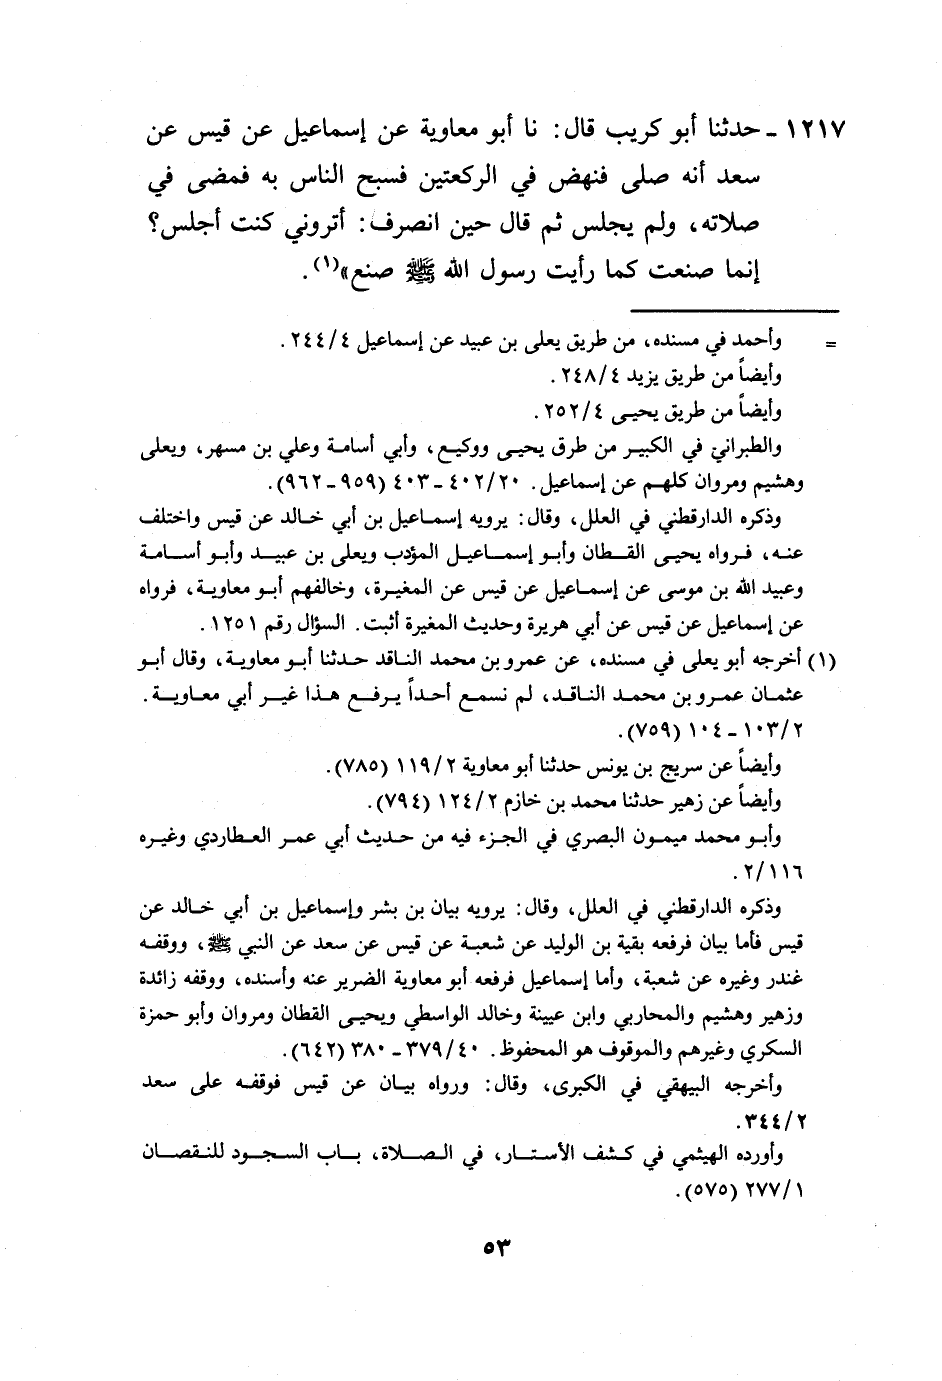 ١٢١٧ - حدثنا أبو كريب قال: نا أبو معاوية عن إسماعيل عن قيس عن
سعد أنه صلى فنهض في الركعتين فسبح الناس به فمضى في
صلاته، ولم يجلس ثم قال حين انصرف: أتروني كنت أجلس؟
إنما صنعت كما رأيت رسول الله ﷺ صنع»(١).
= وأحمد في مسنده، من طريق يعلى بن عبيد عن إسماعيل ٢٤٤/٤.
وأيضاً من طريق يزيد ٢٤٨/٤.
وأيضاً من طريق يحيى ٢٥٢/٤.
والطبراني في الكبير من طرق يحيى ووكيع، وأبي أسامة وعلي بن مسهر، ويعلى
وهشيم ومروان كلهم عن إسماعيل. ٤٠٢/٢٠ - ٤٠٣ (٩٥٩ - ٩٦٢).
وذكره الدارقطني في العلل، وقال: يرويه إسماعيل بن أبي خالد عن قيس واختلف
عنه، فرواه يحيى القطان وأبو إسماعيل المؤدب ويعلى بن عبيد وأبو أسامة
وعبيد الله بن موسى عن إسماعيل عن قيس عن المغيرة، وخالفهم أبو معاوية، فرواه
عن إسماعيل عن قيس عن أبي هريرة وحديث المغيرة أثبت. السؤال رقم ١٢٥١.
(١) أخرجه أبو يعلى في مسنده، عن عمرو بن محمد الناقد حدثنا أبو معاوية، وقال أبو
عثمان عمرو بن محمد الناقد، لم نسمع أحداً يرفع هذا غير أبي معاوية.
١٠٣/٢ - ١٠٤ (٧٥٩).
وأيضاً عن سريج بن يونس حدثنا أبو معاوية ١١٩/٢ (٧٨٥).
وأيضاً عن زهير حدثنا محمد بن خازم ١٢٤/٢ (٧٩٤).
وأبو محمد ميمون البصري في الجزء فيه من حديث أبي عمر العطاردي وغيره
٢/١١٦.
وذكره الدارقطني في العلل، وقال: يرويه بيان بن بشر وإسماعيل بن أبي خالد عن
قيس فأما بيان فرفعه بقية بن الوليد عن شعبة عن قيس عن سعد عن النبي ﷺ، ووقفه
غندر وغيره عن شعبة، وأما إسماعيل فرفعه أبو معاوية الضرير عنه وأسنده، ووقفه زائدة
وزهير وهشيم والمحاربي وابن عيينة وخالد الواسطي ويحيى القطان ومروان وأبو حمزة
السكري وغيرهم والموقوف هو المحفوظ. ٣٧٩/٤٠ - ٣٨٠ (٦٤٢).
وأخرجه البيهقي في الكبرى، وقال: ورواه بيان عن قيس فوقفه على سعد
٣٤٤/٢.
وأورده الهيثمي في كشف الأستار، في الصلاة، باب السجود للنقصان
٢٧٧/١ (٥٧٥).
٥٣